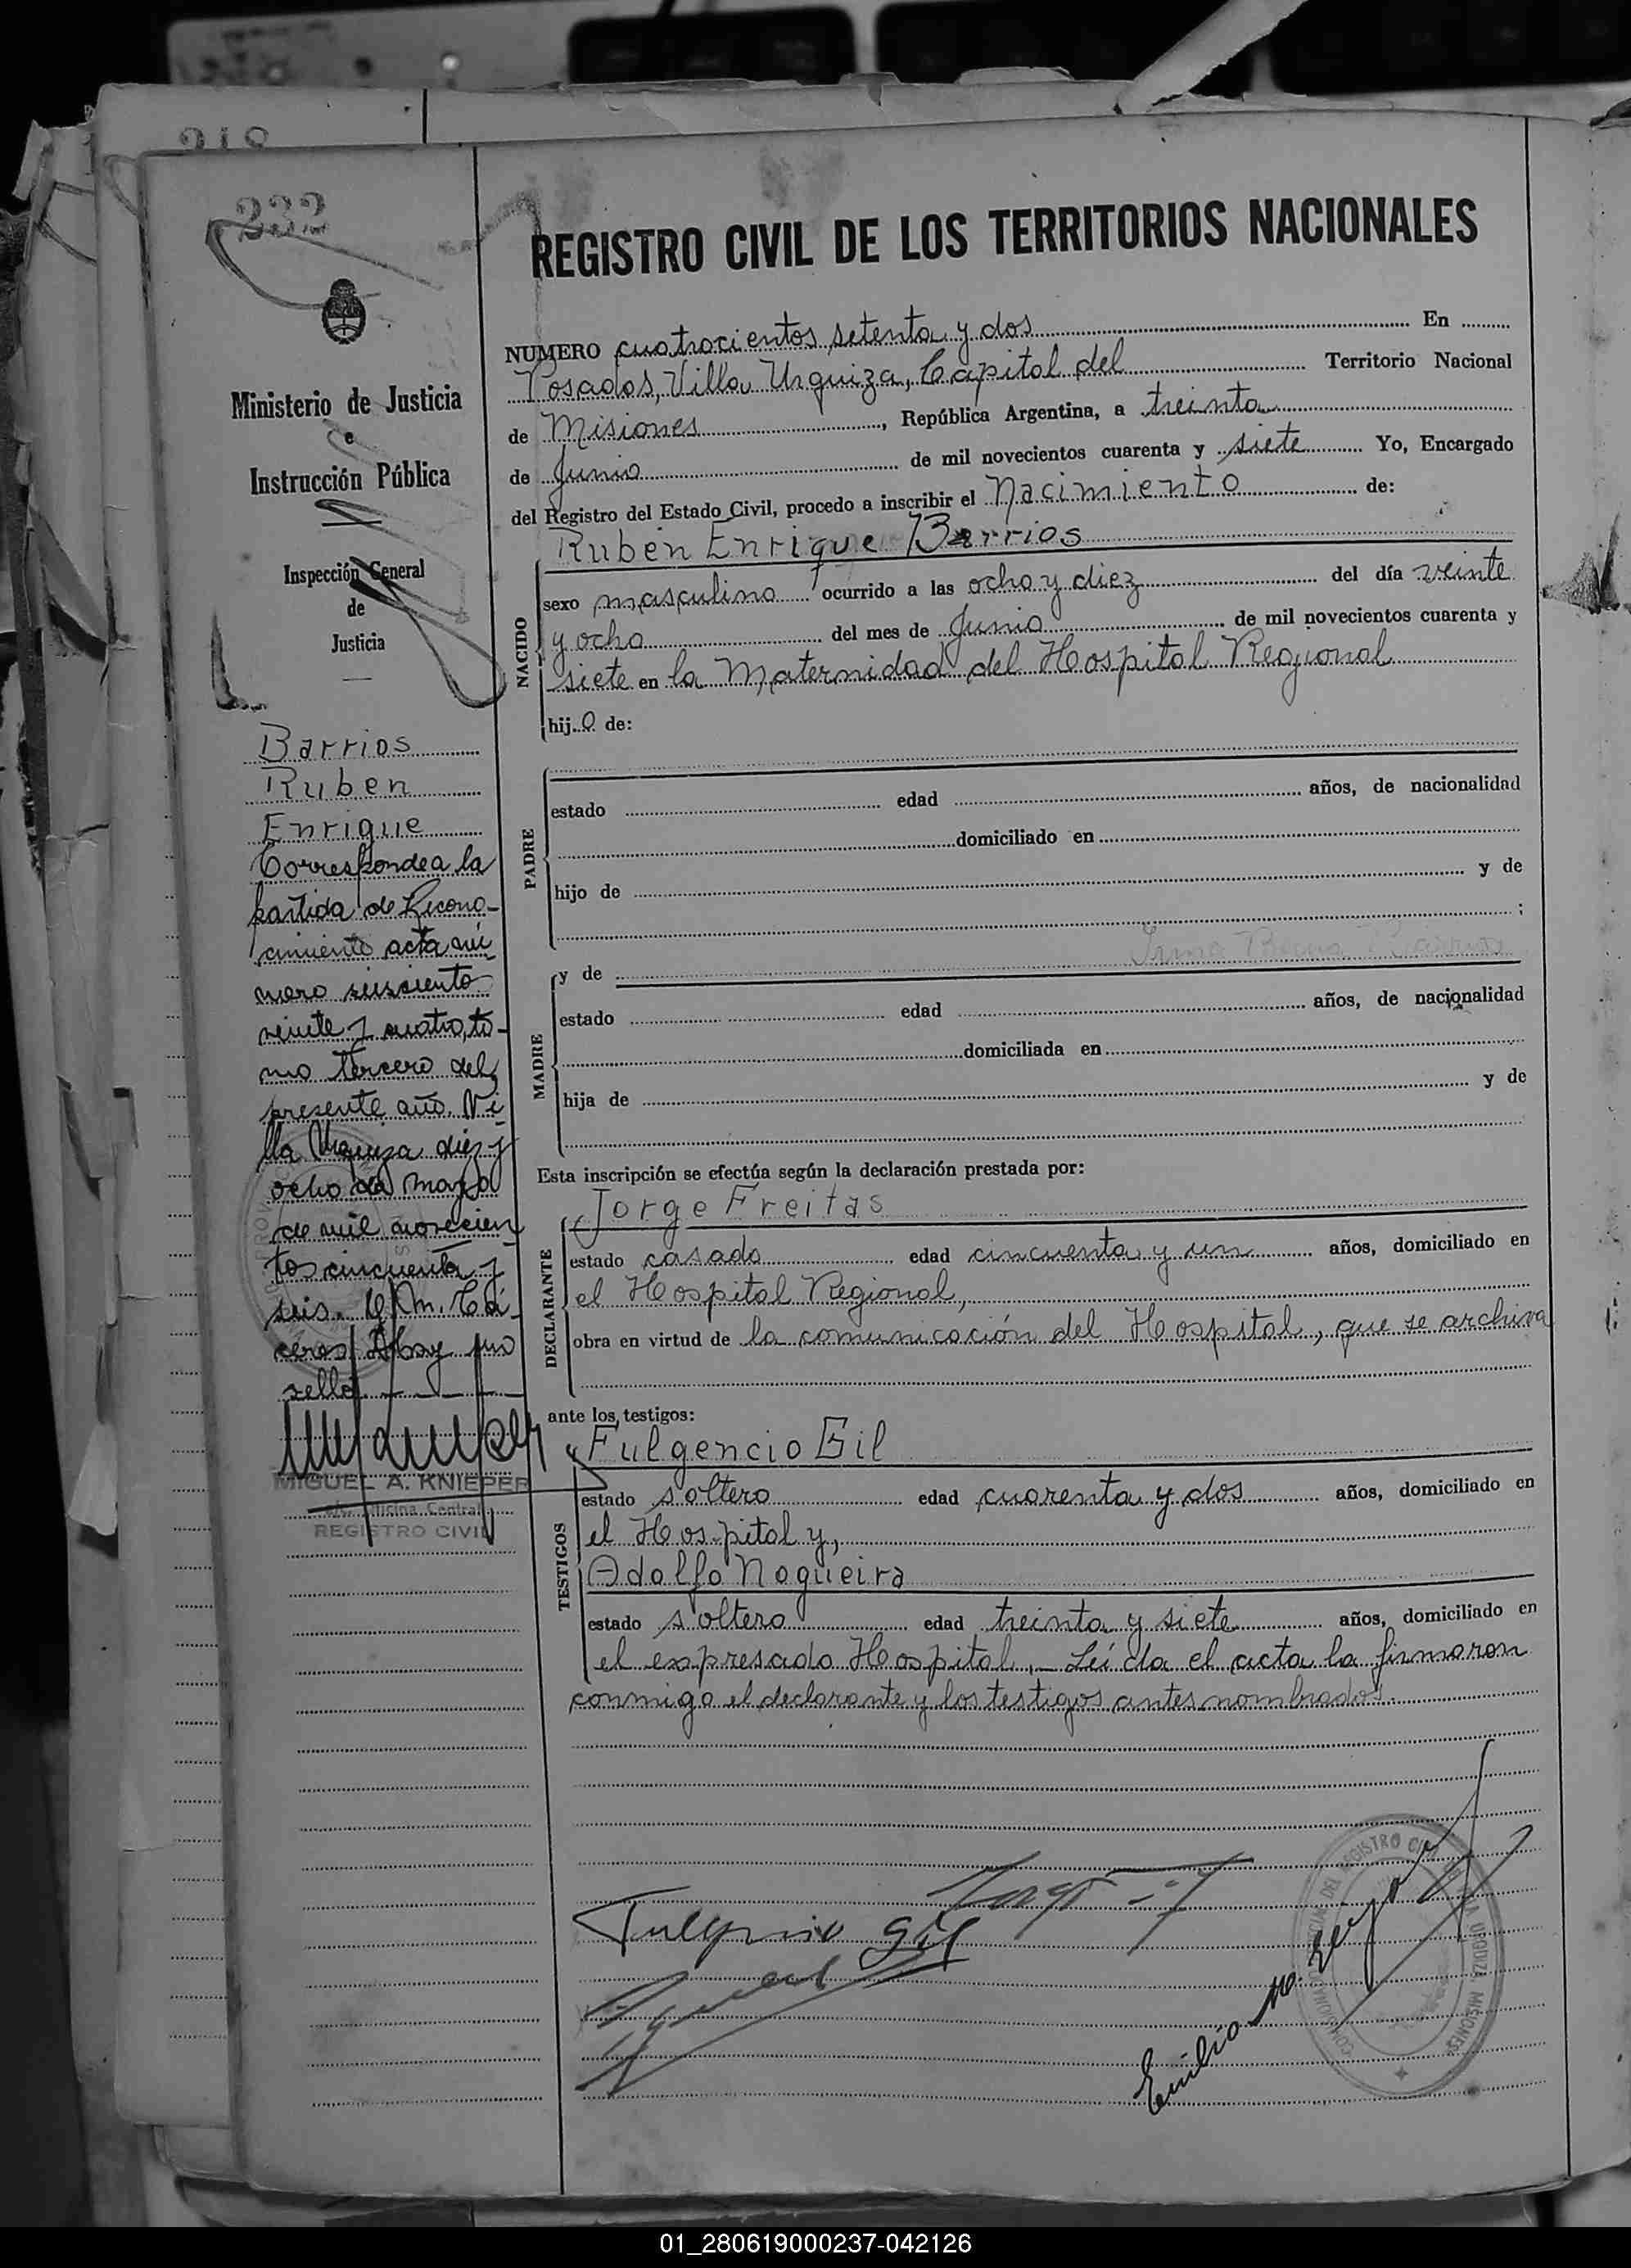 218
232
Ministerio de Justicia
e
Instrucción Pública
Inspección General
de
Justicia
Barrios
Ruben
Enrique
Corresponde a la
partida de Recono-
cimiento acta nú
mero seiscientos
veinte y cuatro, to-
mo tercero del
presente año. Vi
lla Urquiza diez y
ocho de mayo
de mil novecien
tos cincuenta y
seis.
sello
MIGUEL A. KNIEPER
Oficina Central
REGISTRO CIVIL
REGISTRO CIVIL DE LOS TERRITORIOS NACIONALES
NUMERO cuatrocientos setenta y dos En
Posadas, Villa Urquiza, Capital del Territorio Nacional
de Misiones, República Argentina, a treinta
de Junio de mil novecientos cuarenta y siete Yo, Encargado
del Registro del Estado Civil, procedo a inscribir el Nacimiento de:
Ruben Enrique Barrios
NACIDO
sexo masculino ocurrido a las ocho y diez del día veinte
y ocho del mes de Junio de mil novecientos cuarenta y
siete en la Maternidad del Hospital Regional
hijo de:
PADRE
estado edad años, de nacionalidad
domiciliado en
hijo de y de
;
MADRE
y de Irma Barrios
estado edad años, de nacionalidad
domiciliada en
hija de y de
Esta inscripción se efectúa según la declaración prestada por:
Jorge Freitas
DECLARANTE
estado casado edad cincuenta y un años, domiciliado en
el Hospital Regional,
obra en virtud de la comunicación del Hospital, que se archiva
ante los testigos:
Fulgencio Gil
TESTIGOS
estado soltero edad cuarenta y dos años, domiciliado en
el Hospital y,
Adolfo Nogueira
estado soltero edad treinta y siete años, domiciliado en
el expresado Hospital.- Leída el acta la firmaron
conmigo el declarante y los testigos antes nombrados.
Fulgencio Gil
Emilio M.
REGISTRO CIVIL URQUIZA MISIONES
01_280619000237-042126